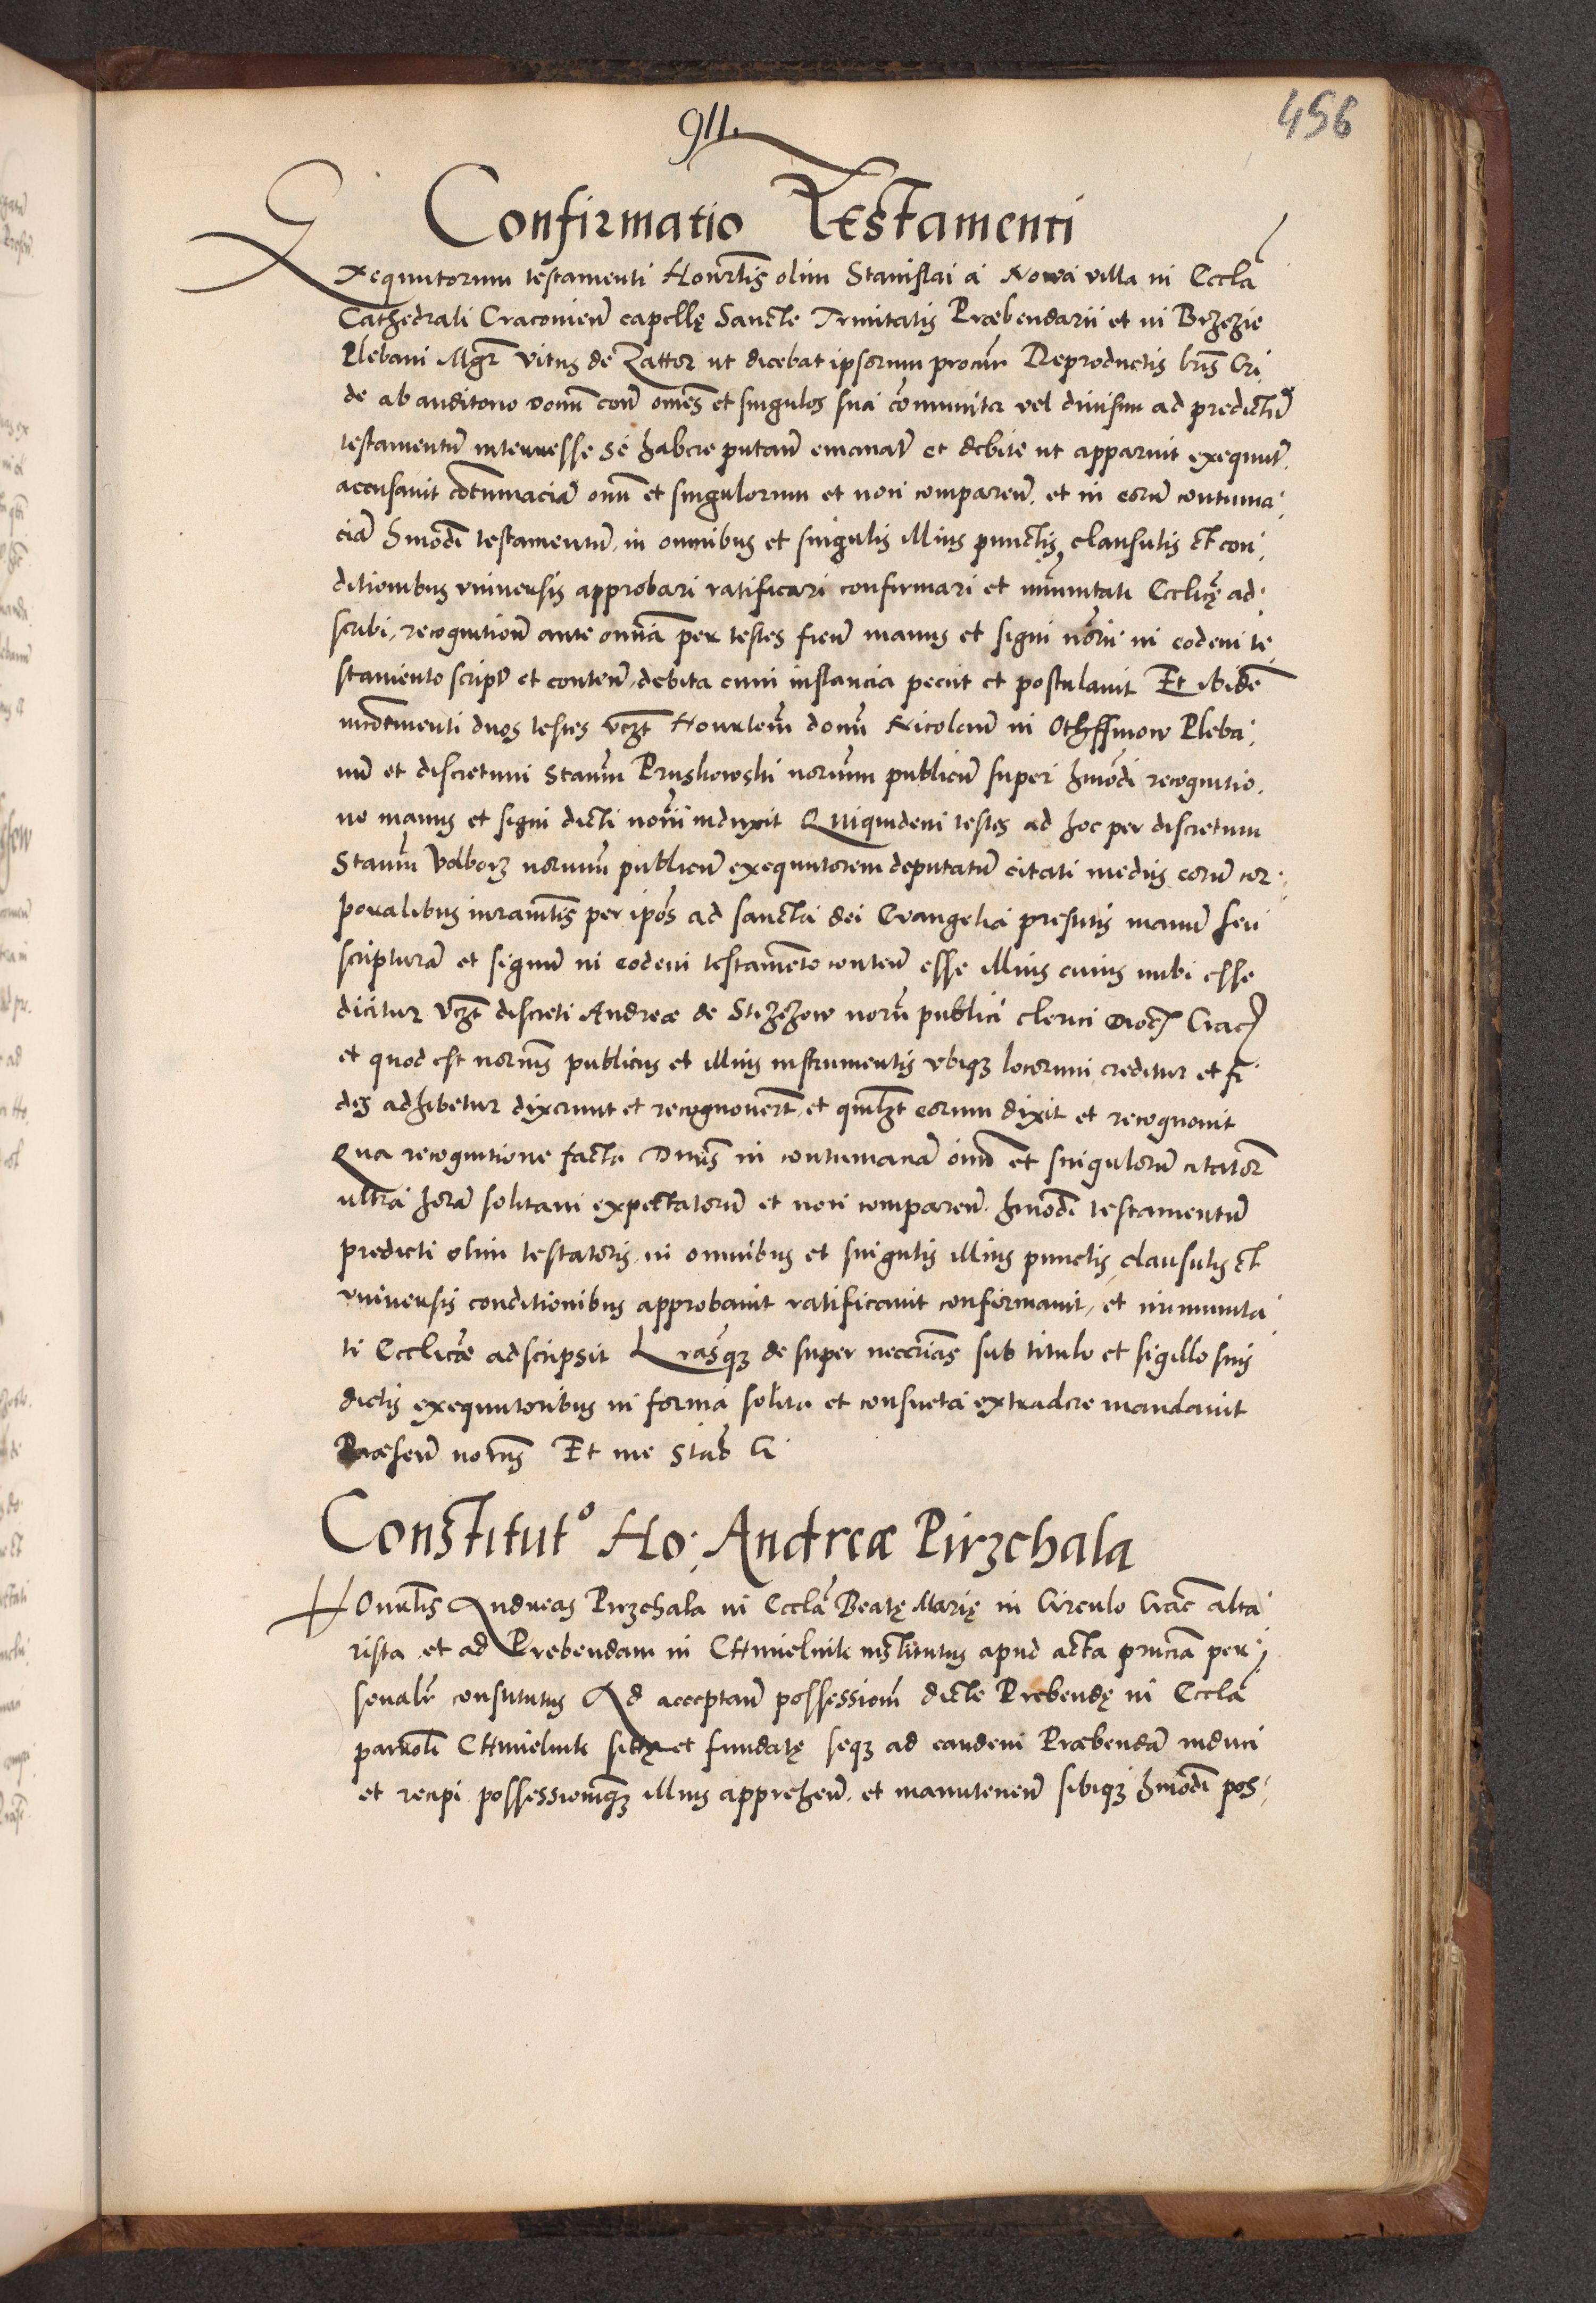 911.
456
Confirmatio Testamenti
Exequutorum testamenti Honorlis olim Stanislai a Nowa villa in Eccla
Cathedrali Cracovien capellę Sancte Trinitatis Præbendarii et in Brzezie
Plebani Mgr Vitus de Zattor ut dicebat ipsorum procur Reproductis lris Cri
de ab auditorio Domi contra omes et singulos sua comuniter vel divisim ad predictum
testamentum interesse se habere putan emanat et debite ut apparuit exequut
accusavit cotumaciam oium et singulorum et non comparen. et in eorum contuma
ciam Hmodi testamentum in omnibus et singulis illius punctis, clausulis et con
ditionibus universis approbari ratificari confirmari et imunitati Ecclicę ad
scribi, recognition ante omnia per testes fien manus et signi norii in eodem te
stamento script et conten, debita cum instancia peciit et postulavit Et ibidem
incotinenti duos testes vczt Honorlem domi Nicolaum in Othffinow Pleba
num et discretum Stanum Pruskowski norium publicum super hmodi recognitio
ne manus et signi dicti norii induxit Quiquidem testes ad hoc per discretum
Stanum Volborz norium publicum exequutorem deputatum citati mediis eorum cor
poralibus iuramtis per ipos ad sancta dei Evangelia prestitis manum seu
scripturam et signum in eodem testameto conten esse illius cuius inibi esse
dicitur vczt discreti Andreæ de Strzezow norii publici clerici Dioc Crac
et quod est norius publicus et illius instrumentis ubiqz locorum creditur et fi
des adhibetur dixerunt et recognovert, et quilzt eorum dixit et recognovit
Qua recognitione facta Dnus in contumaciam oium et singulorum citator
ultra horam solitam expectatorum et non comparen. hmodi testamentum
predicti olim testatoris in omnibus et singulis illius punctis, clausulis et
universis conditionibus approbavit ratificavit confirmavit, et immunita
ti Ecclicæ adscripsit Lrasqz de super neccrias sub titulo et sigillo suis
dictis exequutoribus in forma solita et consueta extradere mandavit
Præsen norius Et me Stan G
Constitut° Ho: Andreæ Pirzchala
HOnorlis Andreas Pirzchala in Eccla Beatę Marię in Circulo Crac alta
rista et ad Prebendam in CHmielnik institutus apud acta prncia per
sonalr constitutus Ad acceptan possessionem dicte Prebendę in Eccla
parroli CHmielnik sitę et fundatę seqz ad eandem Præbendam induci
et recipi possessionemqz illius apprehen. et manutenen sibiqz hmodi pos